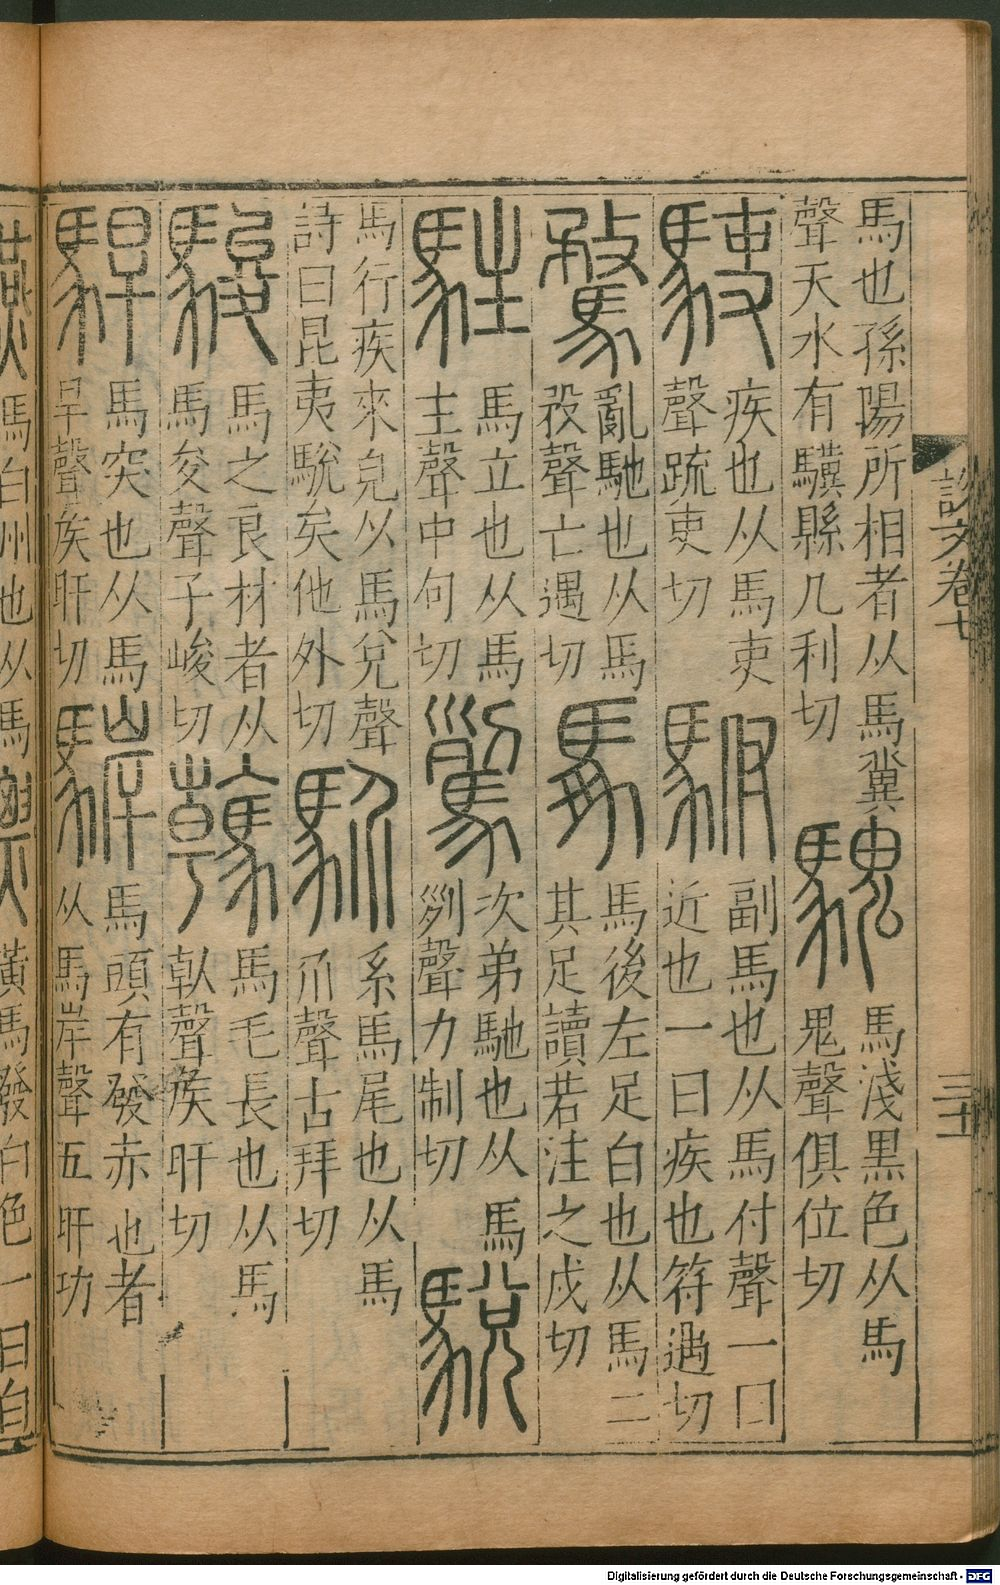 說文卷七
馬也孫陽所相者从馬冀
聲天水有驥縣几利切
騩
馬淺黑色从馬
鬼聲俱位切
駛
疾也从馬吏
聲疏吏切
駙
副馬也从馬付聲一曰
近也一曰疾也符遇切
騖
亂馳也从馬
敄聲亡遇切
馵
馬後左足白也从馬二
其足讀若注之戍切
駐
馬立也从馬
主聲中句切
䮋
次弟馳也从馬
𠛱聲力制切
駾
馬行疾來皃从馬兌聲
詩曰昆夷駾矣他外切
系馬尾也从馬
介聲古拜切
駿
馬之良材者从
馬夋聲子峻切
䮧
馬毛長也从馬
倝聲矦旰切
駻
馬突也从馬
旱聲矦旰切
䮗
馬頭有發赤也者
从馬岸聲五旰功
馬白州也从馬
黃馬發白色一曰白
Digitalisierung gefördert durch die Deutsche Forschungsgemeinschaft - DFG